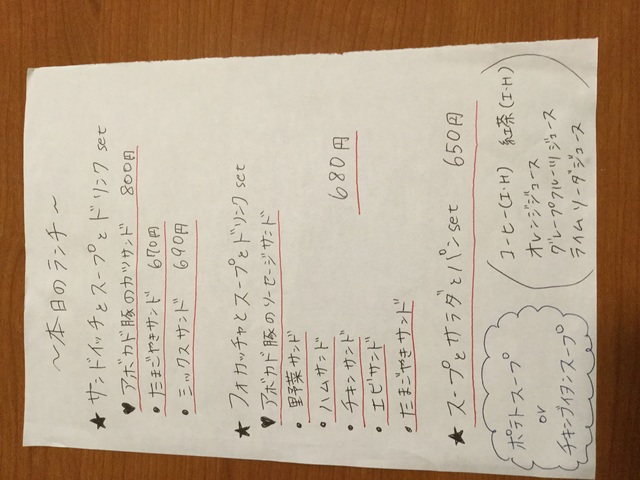 ～本日のランチ～
★ サンドイッチとスープとドリンク set
♥アボカド豚のカツサンド 800円
・たまごやきサンド 670円
・ミックスサンド 690円
★ フォカッチャとスープとドリンク set
♥アボカド豚のソーセージサンド
・野菜サンド
・ハムサンド 680円
・チキンサンド
・エビサンド
・たまごやきサンド
★ スープとサラダとパン set 650円
ポテトスープ
or
チキンブイヨンスープ
コーヒー(I・H) 紅茶(I・H)
オレンジジュース
グレープフルーツジュース
ライムソーダジュース